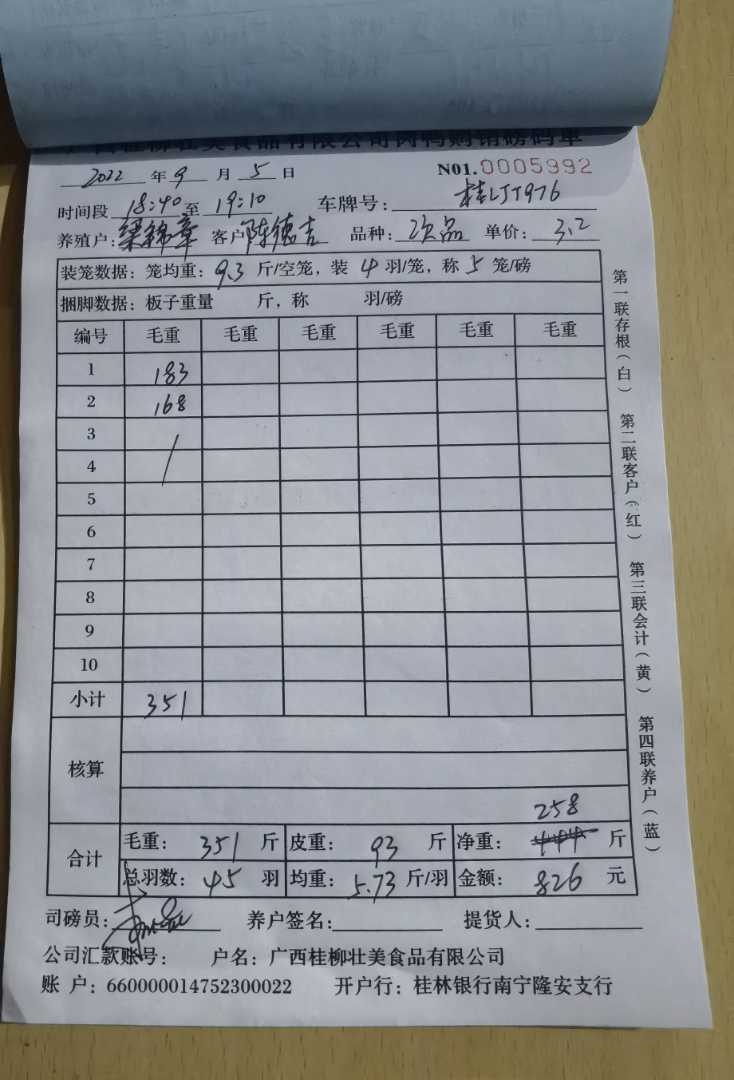 广西桂柳壮美食品有限公司肉鸭购销磅码单
2022 年 9 月 5 日 N01.0005992
时间段 18:40 至 19:10 车牌号: 桂LJT976
养殖户: 梁锦章 客户 陈德吉 品种: 次品 单价: 3.2
装笼数据: 笼均重: 9.3 斤/空笼, 装 4 羽/笼, 称 5 笼/磅
捆脚数据: 板子重量 斤, 称 羽/磅
编号 毛重 毛重 毛重 毛重 毛重 毛重
1 183
2 168
3
4
5
6
7
8
9
10
小计 351
核算
258
合计 毛重: 351 斤 皮重: 93 斤 净重: 斤
总羽数: 45 羽 均重: 5.73 斤/羽 金额: 826 元
司磅员: 养户签名: 提货人:
公司汇款账号: 户名: 广西桂柳壮美食品有限公司
账 户: 660000014752300022 开户行: 桂林银行南宁隆安支行
第一联存根(白) 第二联客户(红) 第三联会计(黄) 第四联养户(蓝)